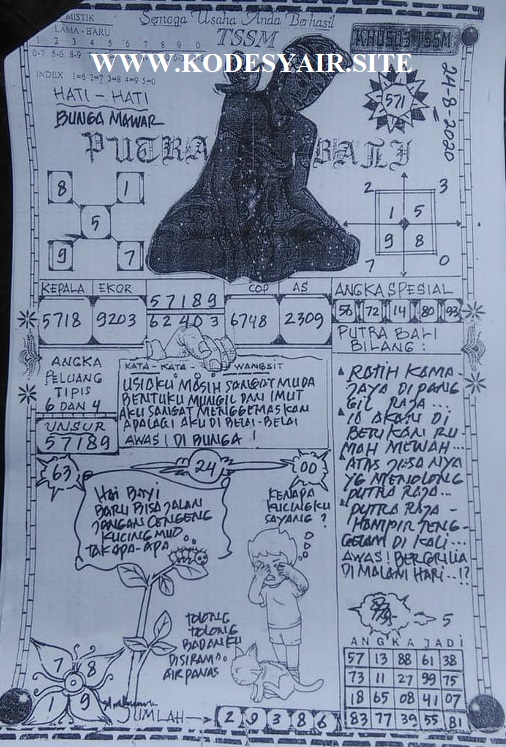 MISTIK
LAMA - BARU
Semoga Usaha Anda Berhasil
TSSM
KHUSUS TSSM
1 2 3 4 5 6 7 8 9 0
WWW.KODESYAIR.SITE
INDEX 1=6 2=7 3=8 4=9 5=0
24-8-2020
571
HATI - HATI
BUNGA MAWAR
PUTRA BALI
8 1
5
9 7
2 3
1 5
9 8
7 0
KEPALA EKOR
5718 9203
57189
62403
COP AS
6748 2309
ANGKA SPESIAL
58 72 14 80 93
PUTRA BALI
BILANG :
ANGKA
PELUANG
TIPIS
6 DAN 4
UNSUR
57189
KATA - KATA WANGSIT
USIAKU MASIH SANGAT MUDA
BENTUKU MUNGIL DAN IMUT
AKU SANGAT MENGGEMASKAN
APALAGI AKU DI BELAI-BELAI
AWAS ! DI BUNGA !
RATIH KAMA-
JAYA DI PANG
GIL RAJA...
IA AKAN DI
BERIKAN RU
MAH MEWAH...
ATAS JASA NYA
YG MENOLONG
PUTRA RAJA...
PUTRA RAJA -
HAMPIR TENG-
GELAM DI KALI...
AWAS ! BERGRILIA
DI MALAM HARI...!?
63
24
00
HAI BAYI
BARU BISA JALAN
JANGAN CENGENG
KUCING MUD..
TAK APA-APA...
KENAPA
KUCINGKU
SAYANG ?
TOLONG
TOLONG
BADANKU
DISIRAM
AIR PANAS
5
ANGKA JADI
57 13 88 61 38
73 11 27 99 75
18 65 08 41 07
83 77 39 55 81
7 8
1 9
JUMLAH 2 9 3 8 6